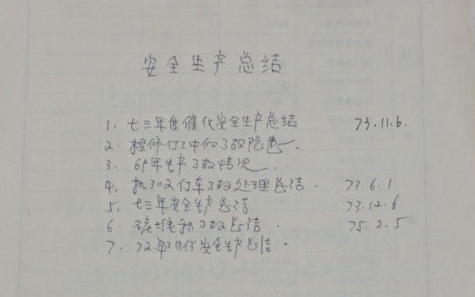 安全生产总结
1. 七三年度催化安全生产总结 73.11.6.
2. 检修行工中的事故隐患.
3. 69年生产事故情况.
4. 机302停车事故处理总结. 73.6.1
5. 七三年安全生产总结 73.12.6
6. 事故总结. 75.2.5
7. 72年 安全生产总结.